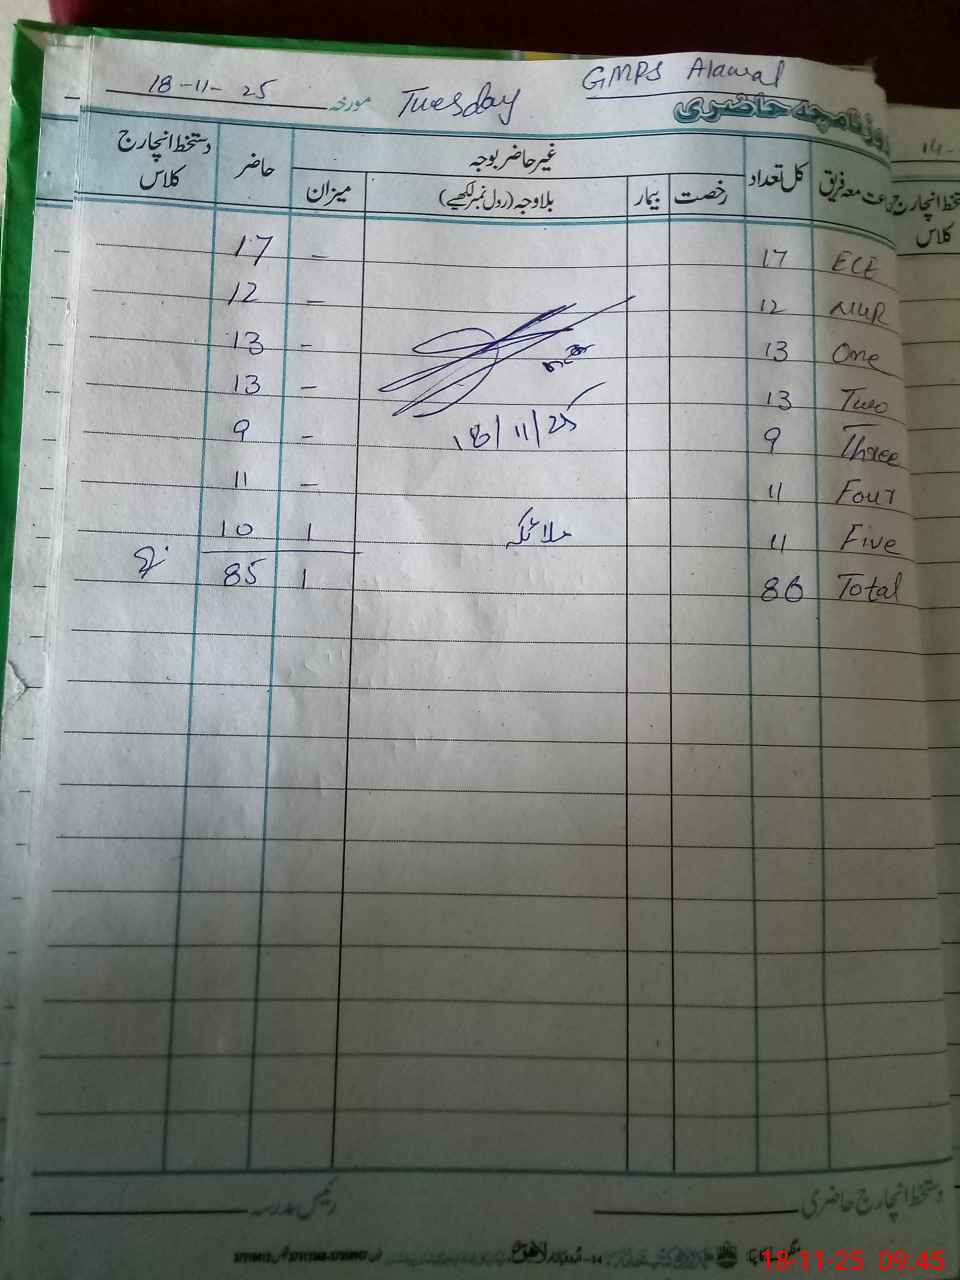 GMPS Alawal
روزنامچہ حاضری
Tuesday
مورخہ 18-11-25
جماعت معہ فریق کل تعداد غیر حاضر بوجہ حاضر دستخط انچارج کلاس
رخصت بیمار بلاوجہ (رول نمبر لکھیے) میزان
ECE 17 - 17
NUR 12 - 12
One 13 - 13
Two 13 - 13
18/11/25
Three 9 - 9
Four 11 - 11
Five 11 ملائکہ 1 10
Total 86 1 85
دستخط انچارج حاضری
رئیس مدرسہ
14-
دستخط انچارج
کلاس
لاہور
18-11-25 09:45